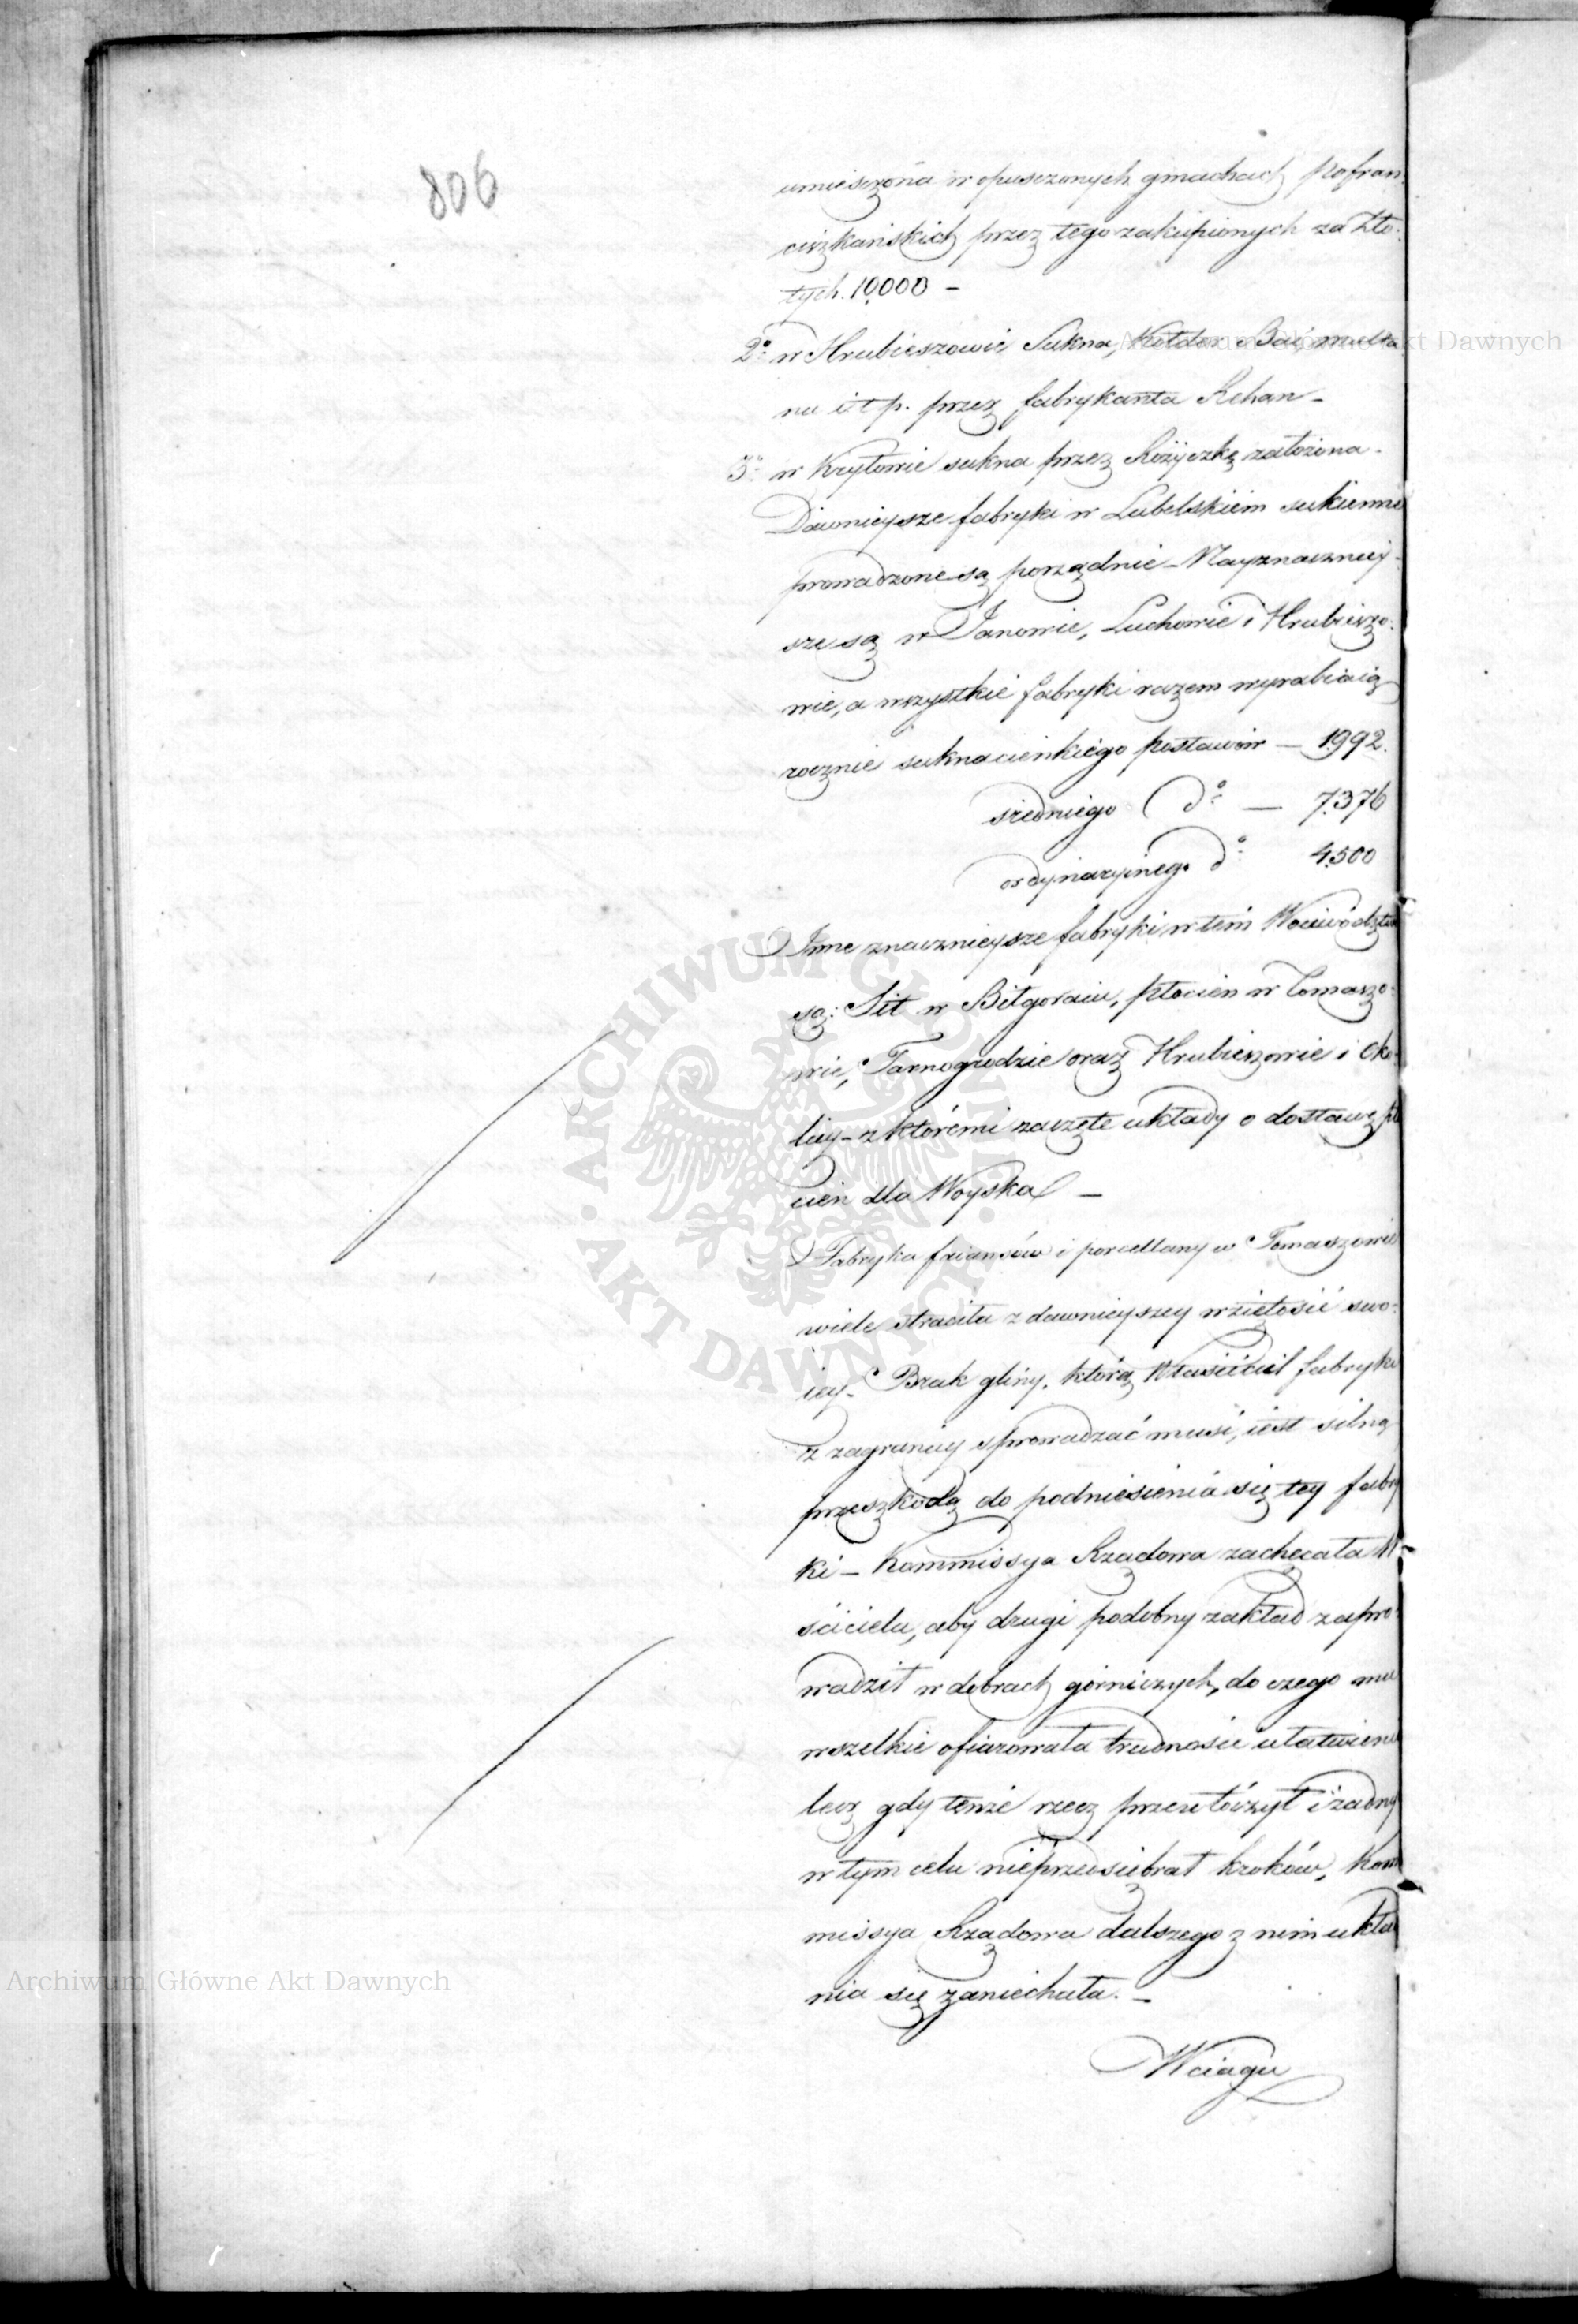 806
umieszczona w opuszczonych gmachach pofran-
ciszkańskich przez tego zakupionych za Zło-
tych. 10,000 –
2o w Hrubieszowie Sukna, Kołder Bai, multa
nu i t p. przez fabrykanta Rehan –
3o w Kryłowie sukna przez Różyczkę założona.
Dawnieysze fabryki w Lubelskiem sukienne
prowadzone są porządnie – Nayznaczniey-
sze są w Janowie, Luchowie i Hrubieszo-
wie, a wszystkie fabryki razem wyrabiaią
rocznie sukna cienkiego postawów — 1992.
średniego do — 7.376
ordynaryinego do 4.500
Inne znacznieysze fabryki w tem Woiewództw
są: Sit w Biłgoraiu, płocien w Tomaszo-
wie, Tarnogrodzie oraz Hrubieszowie i Oko-
licy – z któremi zaczęte układy o dostawę pło
cien dla Woyska –
Fabryka faiansów i porcellany w Tomaszowie
wiele straciła z dawnieyszey wziętości swo-
iey – Brak gliny, którą Właściciel fabryki
z zagranicy sprowadzać musi, iest silną
przeszkodą do podniesienia się tey fabry
ki – Kommissya Rządowa zachęcała W
ściciela, aby drugi podobny zakład zapro-
wadził w dobrach górniczych, do czego mu
wszelkie ofiarowała trudności ułatwienie
lecz gdy tenże rzecz przewłóczył i żadnych
w tym celu nieprzedsiębrał kroków, Kom
missya Rządowa dalszego z nim ukła
nia się zaniechała. –
W ciągu
Archiwum Główne Akt Dawnych
Archiwum Główne Akt Dawnych
ARCHIWUM GŁÓWNE · AKT DAWNYCH ·